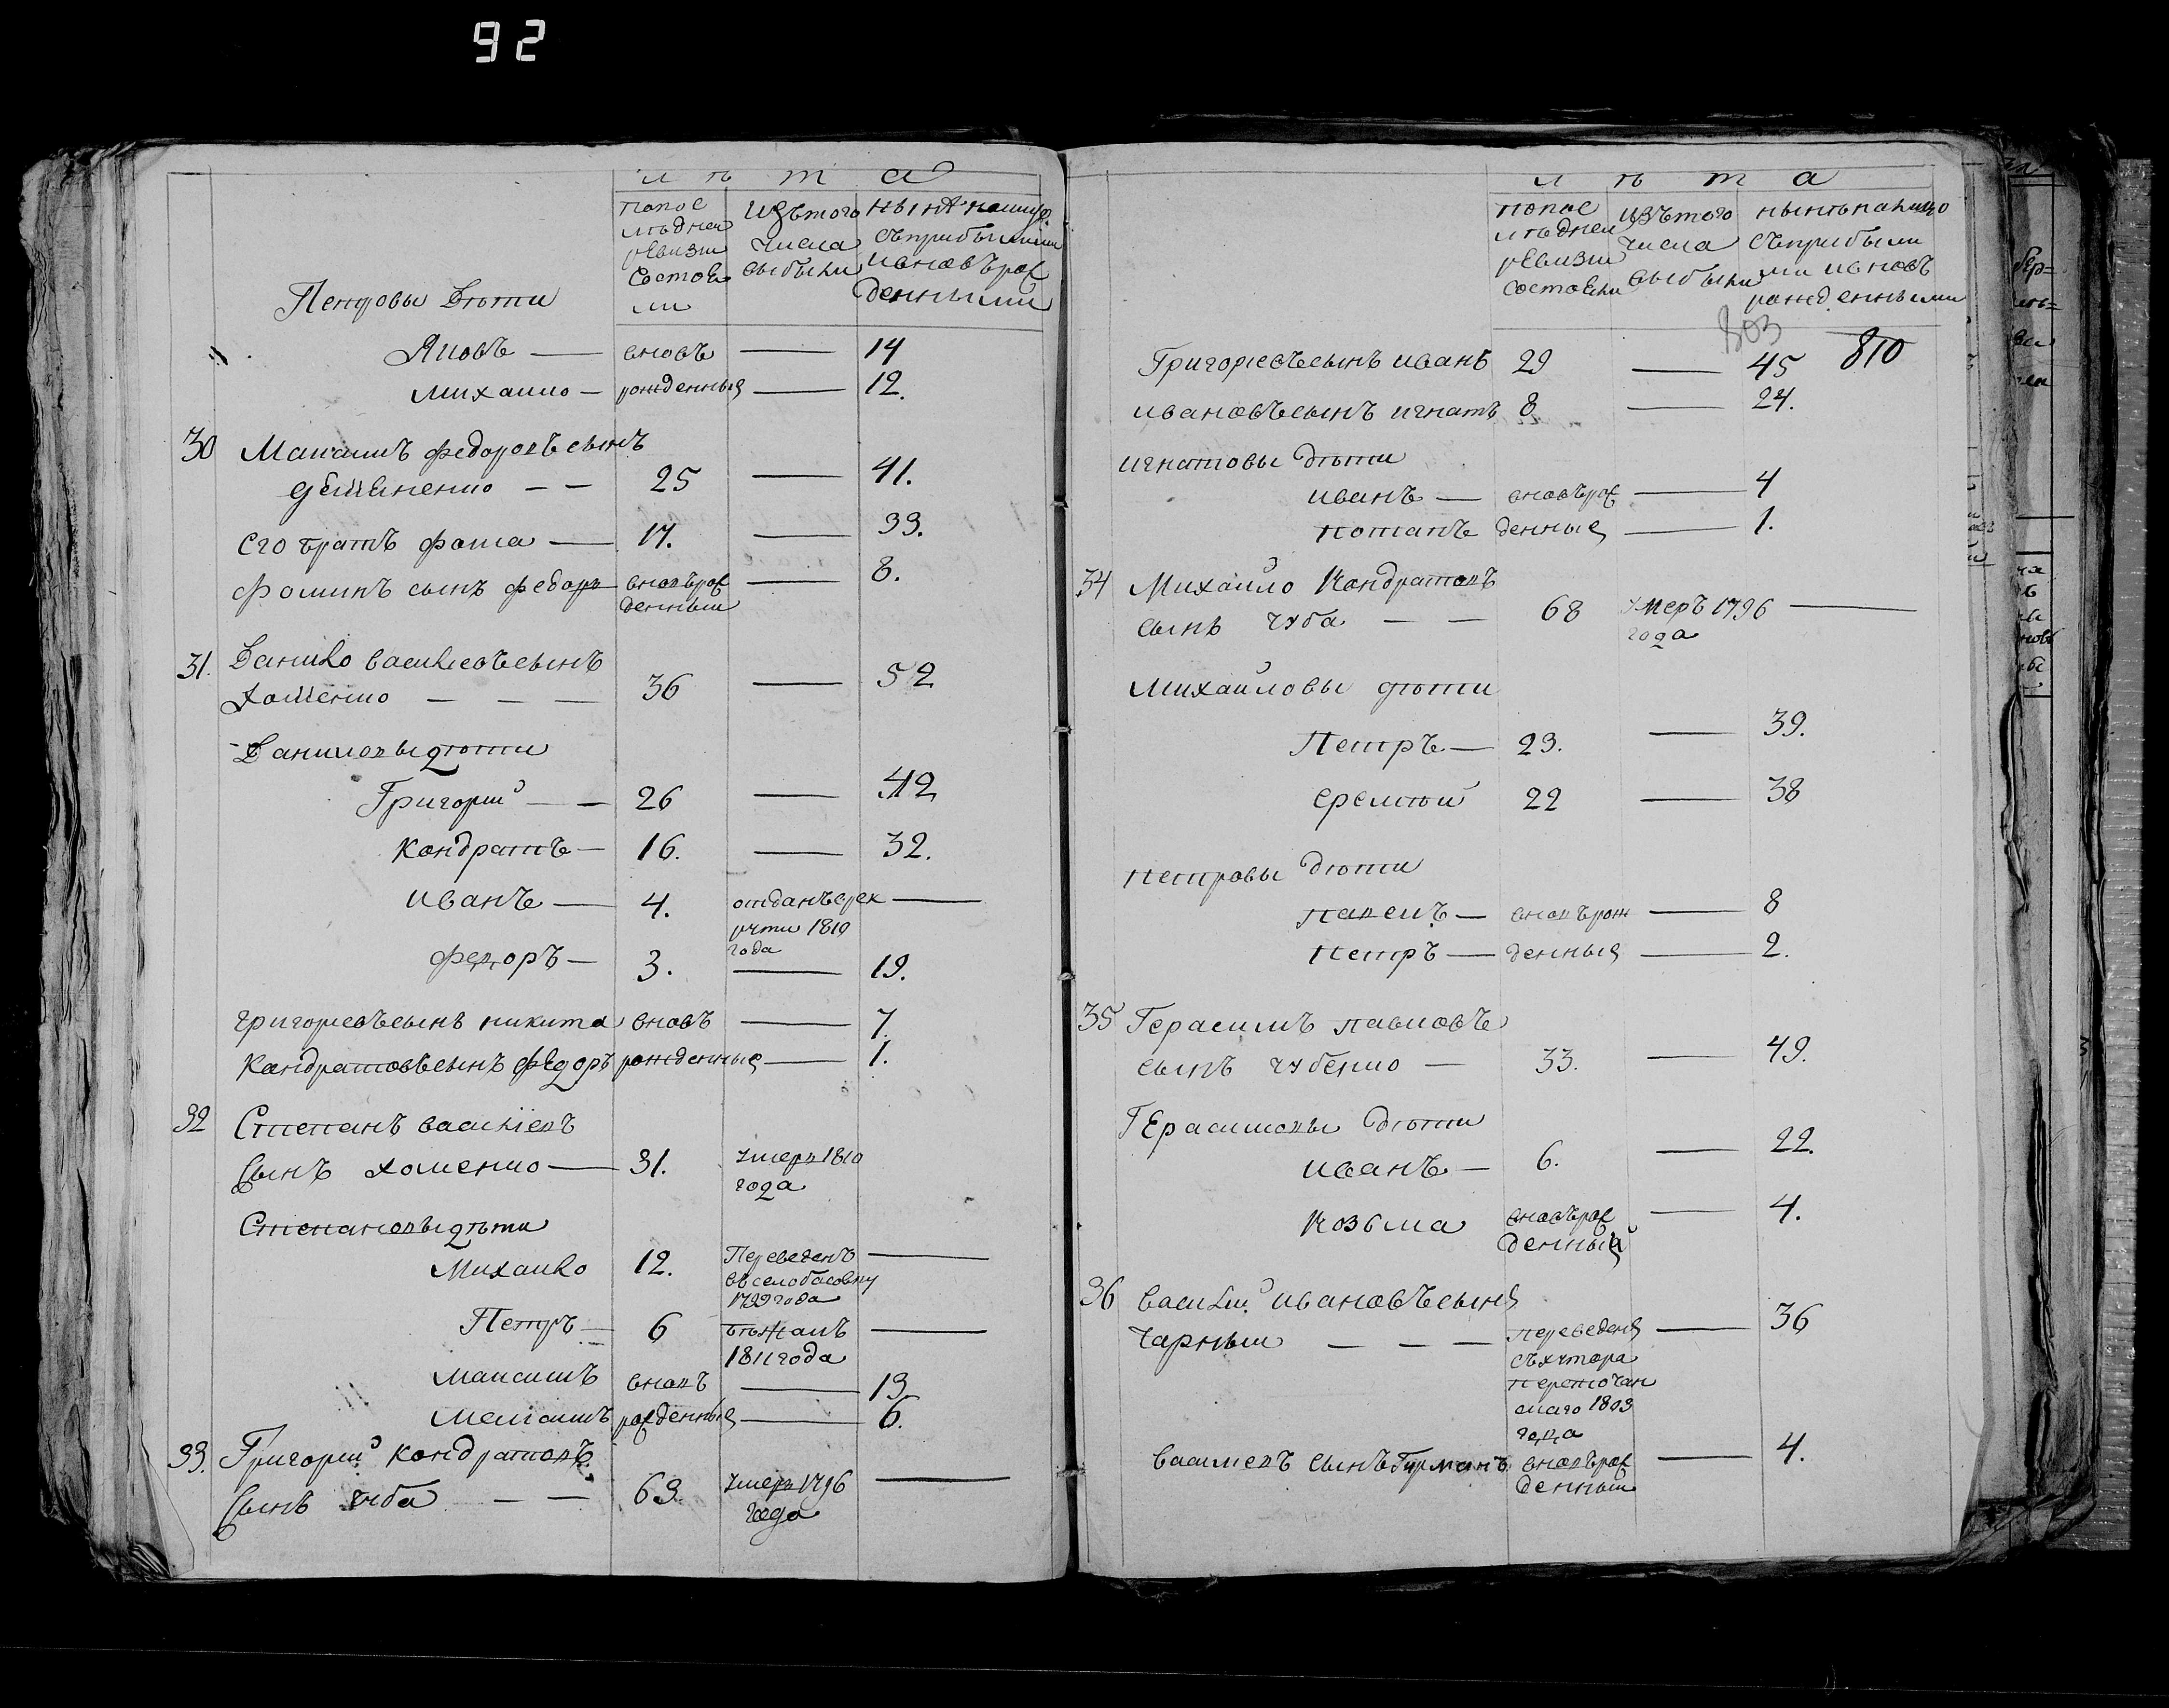 92
лѣта
попос изътого нынѣ налицо
лѣдней числа съприбылими
ревизіи выбыли ивновърож
состоя денными
ли
Петровы Дѣти
Яковъ — вновъ — 14
михаило — рожденныя — 12.
30 Максимъ федоровъ сынъ
— — 25 — 41.
его братъ фома — 17. — 33.
фоминъ сынъ федоръ вновърож — 8.
денныи
31. Данило василіевъ сынъ
хоменко — — — 36 — 52
Даниловы дѣти
Григорий — — 26 — 42
кондратъ — 16. — 32.
иванъ — 4. отданъ врек —
рути 1810
года
федоръ — 3. — 19.
григориевъ сынъ никита вновъ — 7.
кондратовъ сынъ федоръ рожденные — 1.
32 Степанъ василіевъ
сынъ хоменко — 31. умеръ 1810
года
Степановы дѣти
Михаило 12. Переведенъ —
въ село басовку
1799 года
Петръ — 6 бѣжалъ —
1811 года
максимъ вновъ — 13
рожденныя — 6.
33. Григорий кондратовъ
сынъ чуба — — 63. умеръ 1796 —
года
лѣта
попос изътого нынѣ налицо
лѣдней числа съприбылы
ревизіи выбыли ми ивновъ
состояли рожденными
803
810
Григориевъ сынъ иванъ 29 — 45
ивановъ сынъ игнатъ 8 — 24.
игнатовы дѣти
иванъ — вновърож — 4
потапъ денныя — 1.
34 Михаило Кондратовъ
сынъ чуба — — 68 умеръ 1796 —
года
Михаиловы дѣти
Петръ — 23. — 39.
еремѣй 22 — 38
петровы дѣти
павелъ — вновърож — 8
петръ — денныя — 2.
35 Герасимъ павловъ
сынъ чубенко — 33. — 49.
Герасимовы дѣти
иванъ — 6. — 22.
козма вновърож — 4.
денный
36 василий ивановъ сынъ
чарный — — — переведенъ — 36
съхутора
1803
года
василіевъ сынъ Гурманъ вновърож — 4.
денныи